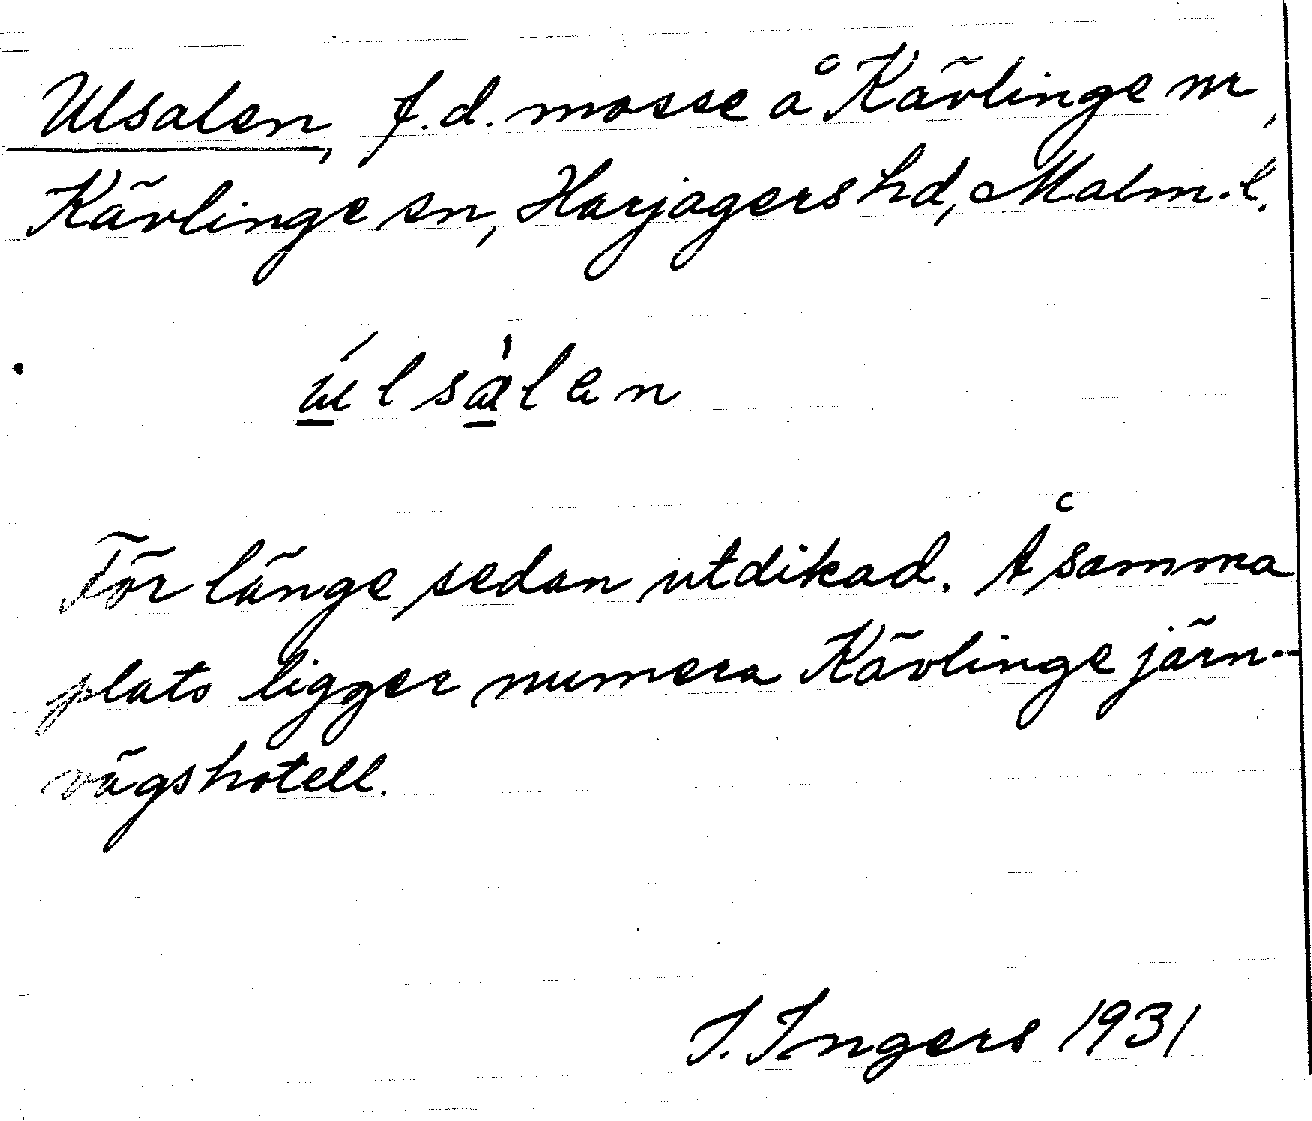 Ulsalen, f.d. mosse å Kävlinge nr,
Kävlinge sn, Harjagers hd, Malm.l.
úlsàlen
För länge sedan utdikad. Å samma
plats ligger numera Kävlinge järn-
vägshotell.
I. Ingers 1931